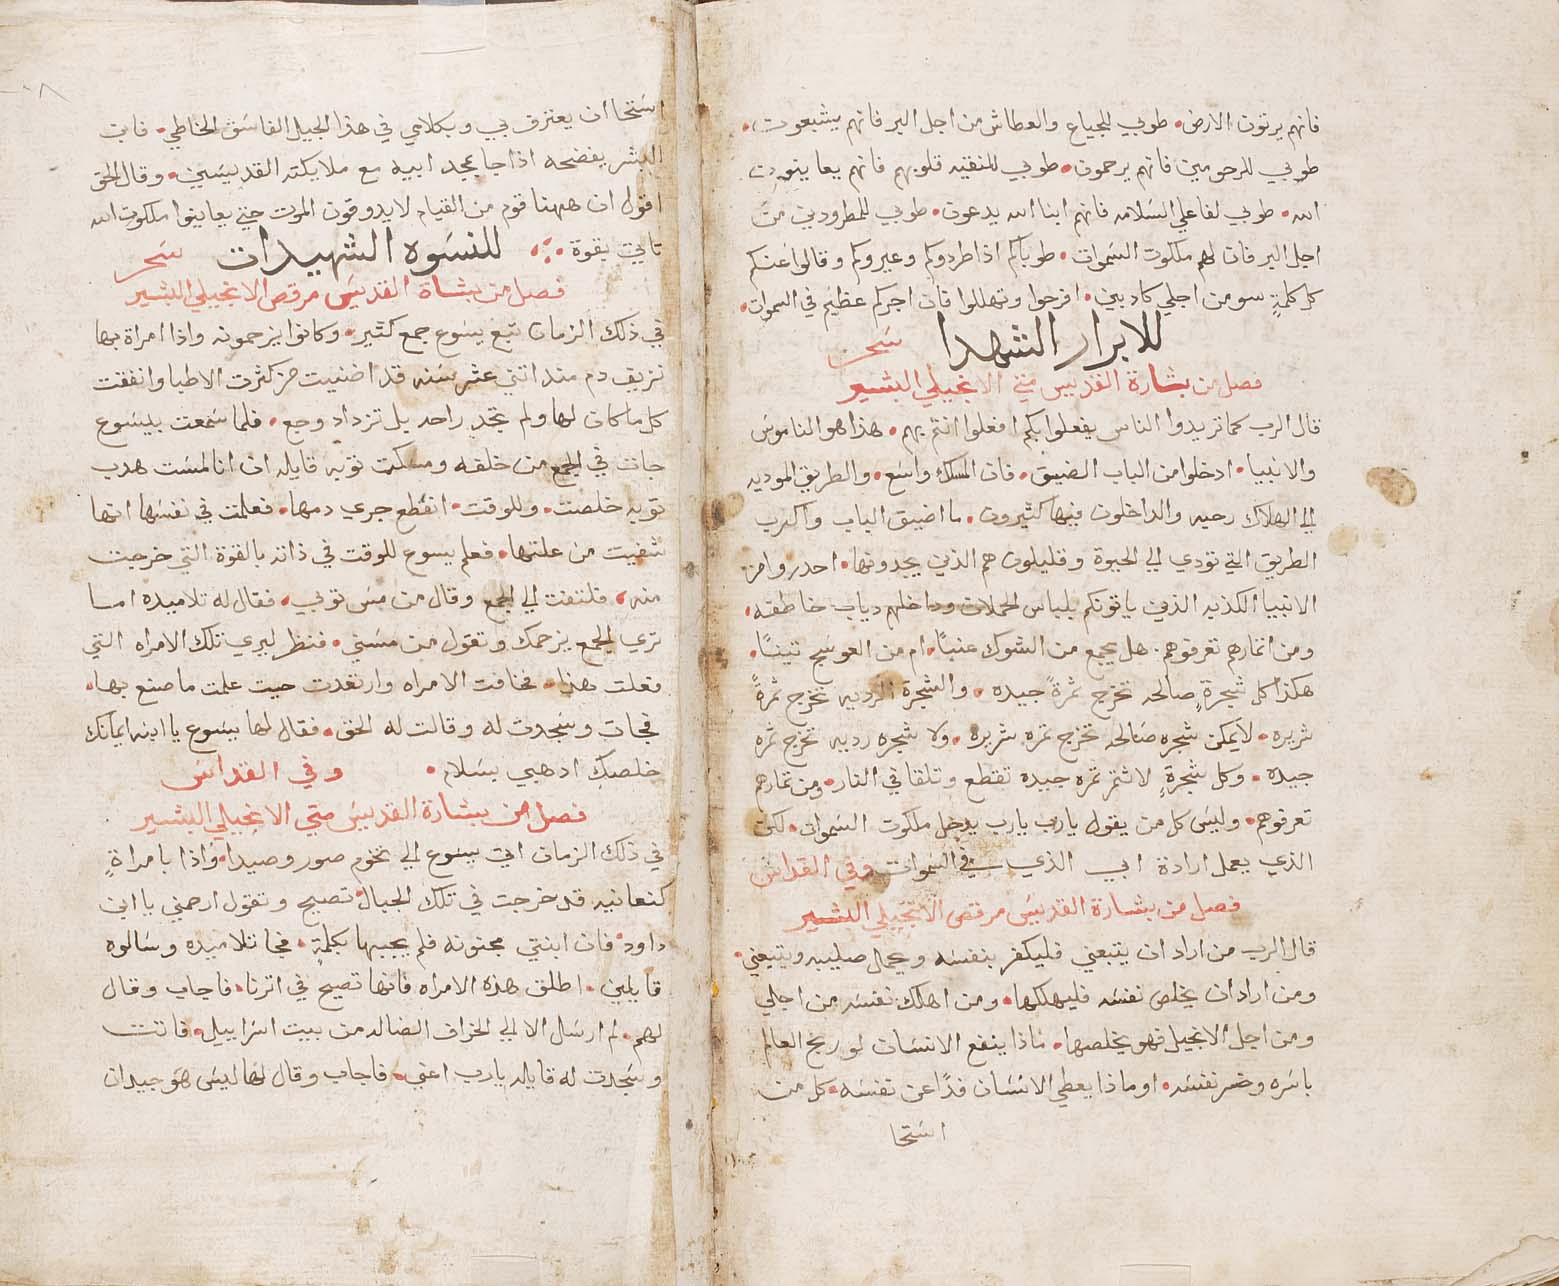 فانهم يرتون الارض٠ طوبي للجياع والعطاش من اجل البر فانهم يشبعون٠
طوبي للرحومين فانهم يرحمون٠ طوبي للمنقيه قلوبهم فانهم يعاينون
الله٠ طوبي لفاعلي السلامه فانهم ابنا الله يدعون٠ طوبي للمطرودين من
اجل البر فان لهم ملكوت السموات٠ طوباكم اذا طردوكم وعيروكم وقالوا عنكم
كل كلمةٍ سو من اجلي كادبين٠ افرحوا وتهللوا فان اجركم عظيم في السموات٠
للابرار الشهدا سحر
فصل من بشارة القديس متي الانجيلي البشير
قال الرب كما تريدوا الناس يفعلوا بكم افعلوا انتم بهم٠ هذا هو الناموس
والانبيا٠ ادخلوا من الباب الضيق٠ فان المسلك واسع٠ والطريق الموديه
الي الهلاك رحبه والداخلون فيها كثيرون٠ ما اضيق الباب واكرب
الطريق التي تودي الي الحيوة وقليلون هم الذين يجدونها٠ احدروا من
الانبيا الكذبه الذين ياتونكم بلباس الحملان وداخلهم دياب خاطفه٠
ومن اتمارهم تعرفوهم٠ هل يجمع من الشوك عنبًا٠ ام من العوسج تينًا٠
هكذا كل شجرةٍ صالحه تخرج ثمرةً جيده٠ والشجرة الرديه تخرج ثمرةً
شريره٠ لا يمكن شجره صالحه تخرج تمره شريره٠ ولا شجره رديه تخرج تمره
جيده٠ وكل شجرةٍ لا تثمر تمره جيده تقطع وتلقا في النار٠ ومن تمارهم
تعرفوهم٠ وليس كل من يقول يارب يارب يدخل ملكوت السموات٠ لكن
الذي يعمل ارادة ابي الذي في السموات وفي القداس
فصل من بشارة القديس مرقص الانجيلي البشير
قال الرب من اراد ان يتبعني فليكفر بنفسه ويحمل صليبه ويتبعني٠
ومن اراد ان يخلص نفسه فليهلكها٠ ومن اهلك نفسه من اجلي
ومن اجل الانجيل فهو يخلصها٠ ماذا ينفع الانسان لو ربح العالم
باسره وخسر نفسه٠ او ماذا يعطي الانسان فدًا عن نفسه٠ كل من
استحا
استحا ان يعترف بي وبكلامي في هذا الجيل الفاسق الخاطي٠ فابن
البشر يفضحه اذا جا بمجد ابيه مع ملايكته القديسين٠ وقال الحق
اقول ان ههنا قوم من القيام لا يدوقون الموت حتي يعاينوا ملكوت الله
تاتي بقوة٠ للنسوه الشهيدات سحر
فصل من بشاة القديس مرقص الانجيلي البشير
في ذلك الزمان تبع يسوع جمع كتير٠ وكانوا يزحمونه واذا امراة بها
نزيف دم مند اتني عشر سنه قد اضنيت من كثرت الاطبا وانفقت
كل ما كان لها ولم تجد راحه بل تزداد وجع٠ فلما سمعت بيسوع
جات في الجمع من خلفه ومسكت توبه قايله ان انا لمست هدب
توبه خلصت٠ وللوقت٠ انقطع جري دمها٠ فعلمت في نفسها انها
شفيت من علتها٠ فعلم يسوع للوقت في ذاته بالقوة التي خرجت
منه٠ فلتفت الي الجمع وقال من مس توبي٠ فقال له تلاميده اما
تري الجمع يزحمك وتقول من مسني٠ فنظر ليري تلك الامراه التي
فعلت هذا٠ فخافت الامراه وارتعدت حيت علمت ما صنع بها٠
فجات وسجدت له وقالت له الحق٠ فقال لها يسوع يا ابنه ايمانك
خلصكِ ادهبي بسلام٠ وفي القداس
فصل من بشارة القديس متي الانجيلي البشير
في ذلك الزمان اتي يسوع الي تخوم صور وصيدا٠ واذا بامراةٍ
كنعانيه قد خرجت في تلك الجبال تصيح وتقول ارحمني يا ابن
داود٠ فان ابنتي مجنونه فلم يجيبها بكلمةٍ٠ فجا تلاميده وسالوه
قايلين٠ اطلق هذه الامراه فانها تصيح في اترنا٠ فاجاب وقال
لهم٠ لم ارسل الا الي الخراف الضاله من بيت اسراييل٠ فاتت
وسجدت له قايله يارب اعني٠ فاجاب وقال لها ليس هو جيدان